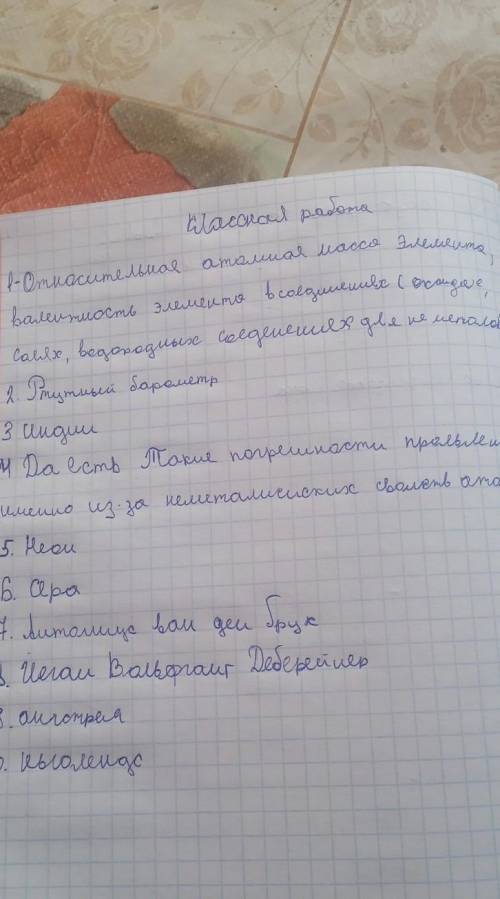 Классная работа
1-Относительная атомная масса элемента,
валентность элемента в соединениях (оксидах,
солях, водородных соеденениях для не метало
2. Ртутный барометр
3 Индии
4 Да есть Такие погрешности проявле
именно из-за неметалисиских свойств ато
5. Неон
6. Сера
7. Антониус ван ден Брук
8. Иеган Вольфганг Деберейнер
9. ангстрем
0. Ньюлендс